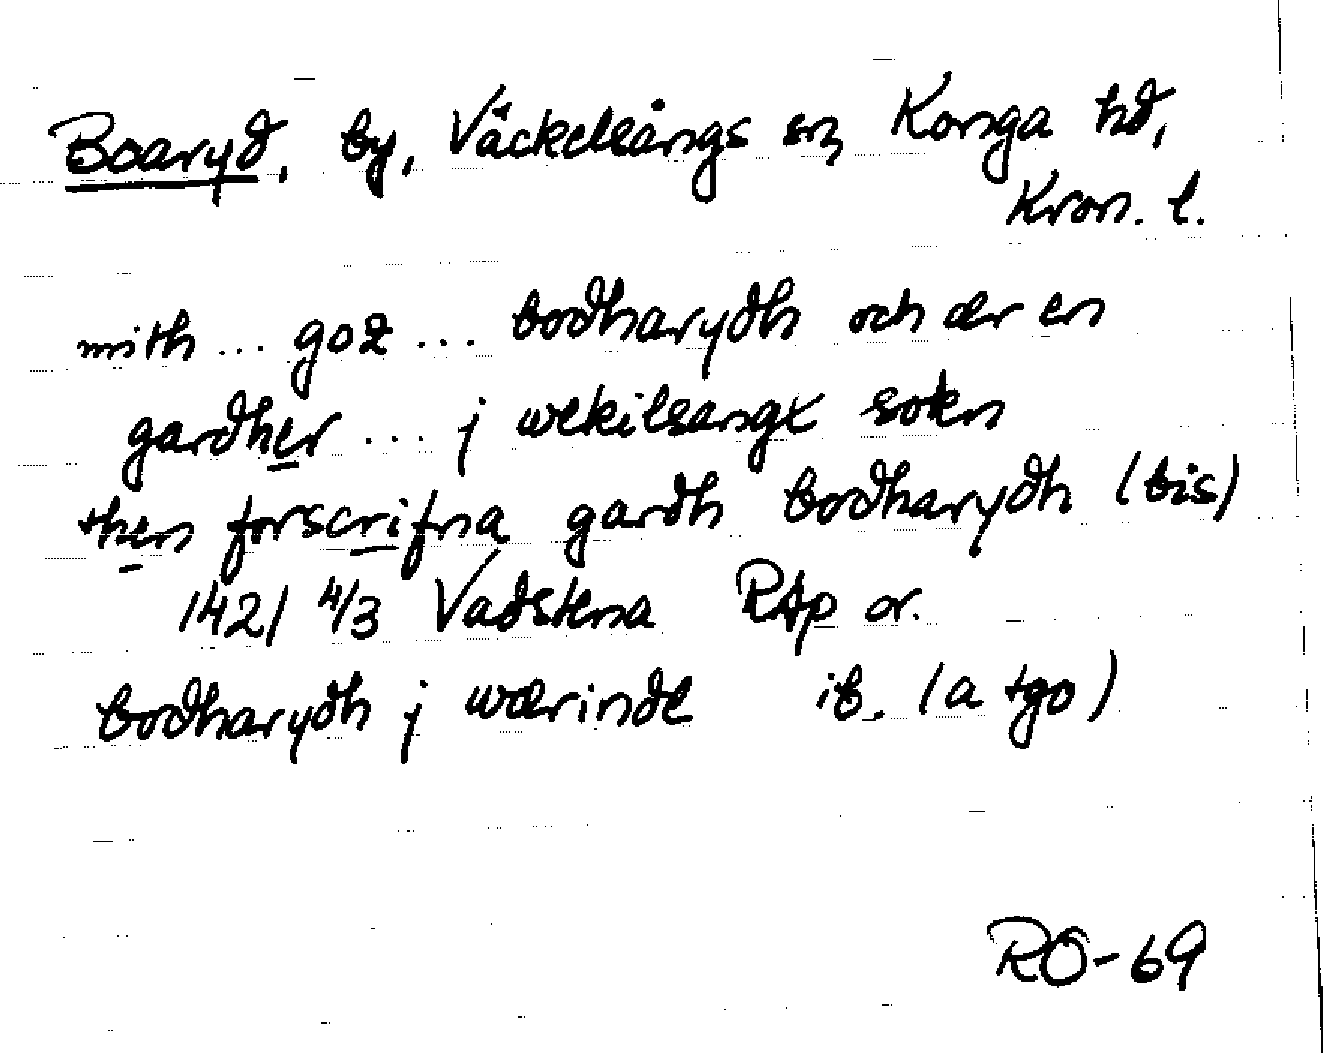 Boaryd, by, Väckelsångs sn, Konga hd,
Kron. l.
mith ... goz ... bodharydh och ær en
gardher ... j wekilsangx sokn
then forscrifna gardh bodharydh (bis)
1421 4/3 Vadstena RAp or.
bodharydh j wærinde ib. (a tgo)
RO-69